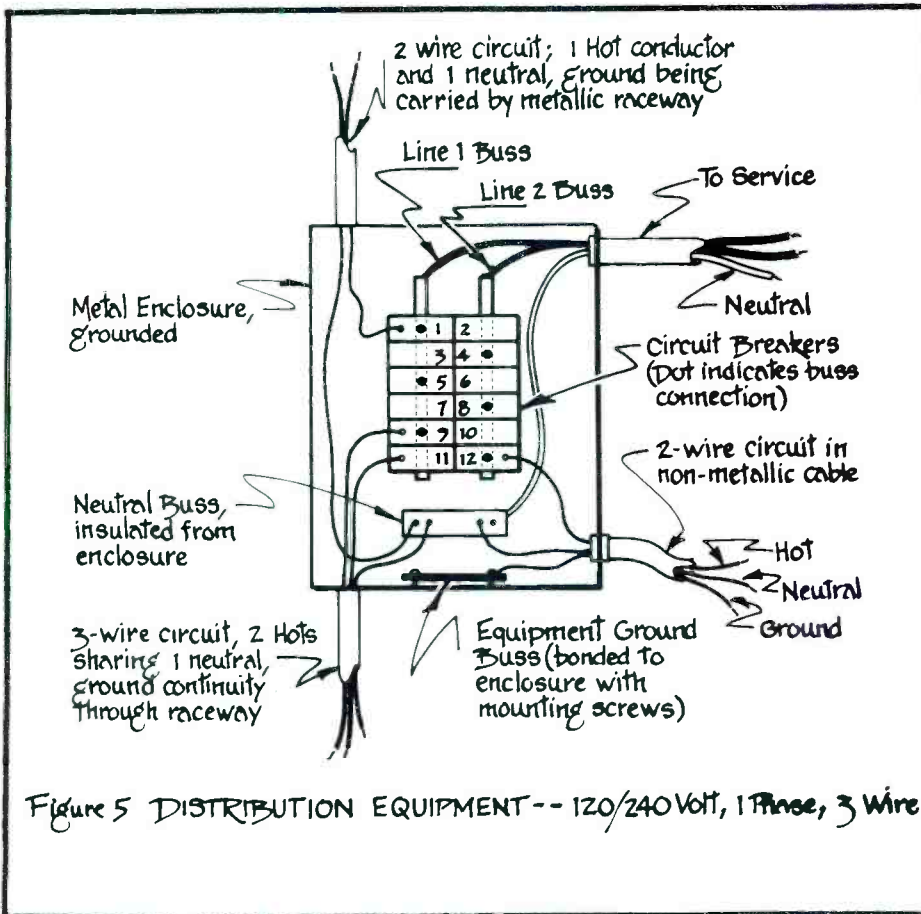 2 wire circuit; 1 Hot conductor
and 1 neutral, ground being
carried by metallic raceway
Line 1 Buss
Line 2 Buss
To Service
Neutral
Metal Enclosure,
grounded
1 2
3 4
5 6
7 8
9 10
11 12
Circuit Breakers
(Dot indicates buss
connection)
2-wire circuit in
non-metallic cable
Neutral Buss,
insulated from
enclosure
Hot
Neutral
Ground
3-wire circuit, 2 Hots
sharing 1 neutral,
ground continuity
through raceway
Equipment Ground
Buss (bonded to
enclosure with
mounting screws)
Figure 5 DISTRIBUTION EQUIPMENT -- 120/240 Volt, 1 Phase, 3 Wire